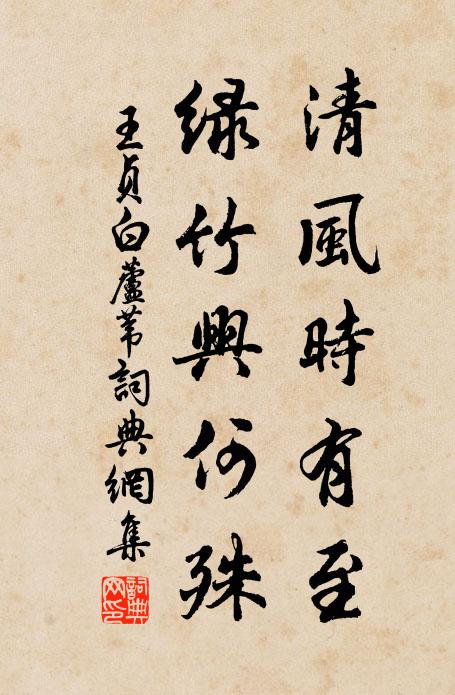 清風時有至
綠竹興何殊
王貞白蘆葦詞典網集
詞典網印